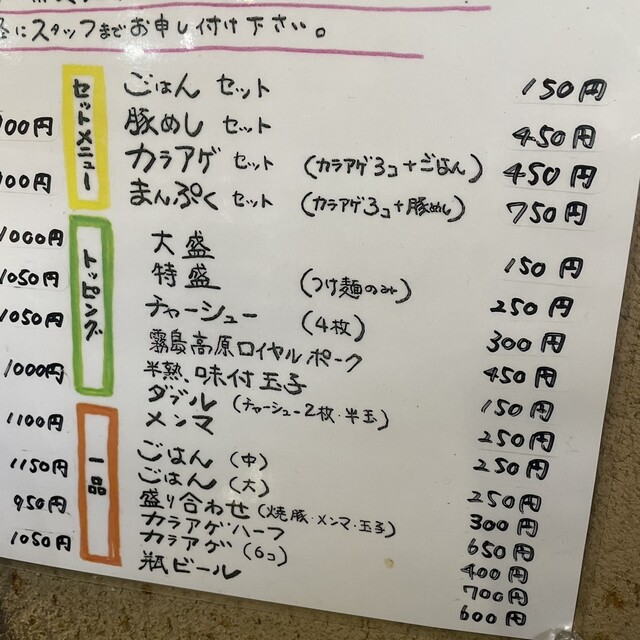 にスタッフまでお申し付け下さい。
セットメニュー
ごはん セット 150円
豚めし セット 450円
カラアゲ セット (カラアゲ3コ+ごはん) 450円
まんぷく セット (カラアゲ3コ+豚めし) 750円
トッピング
大盛 150円
特盛 (つけ麺のみ) 250円
チャーシュー (4枚) 300円
霧島高原ロイヤルポーク 450円
半熟、味付玉子 150円
ダブル (チャーシュー2枚・半玉) 250円
メンマ 250円
一品
ごはん (中) 250円
ごはん (大) 300円
盛り合わせ (焼豚・メンマ・玉子) 650円
カラアゲハーフ 400円
カラアゲ (6コ) 700円
瓶ビール 600円
1000円
1050円
1050円
1000円
1100円
1150円
950円
1050円